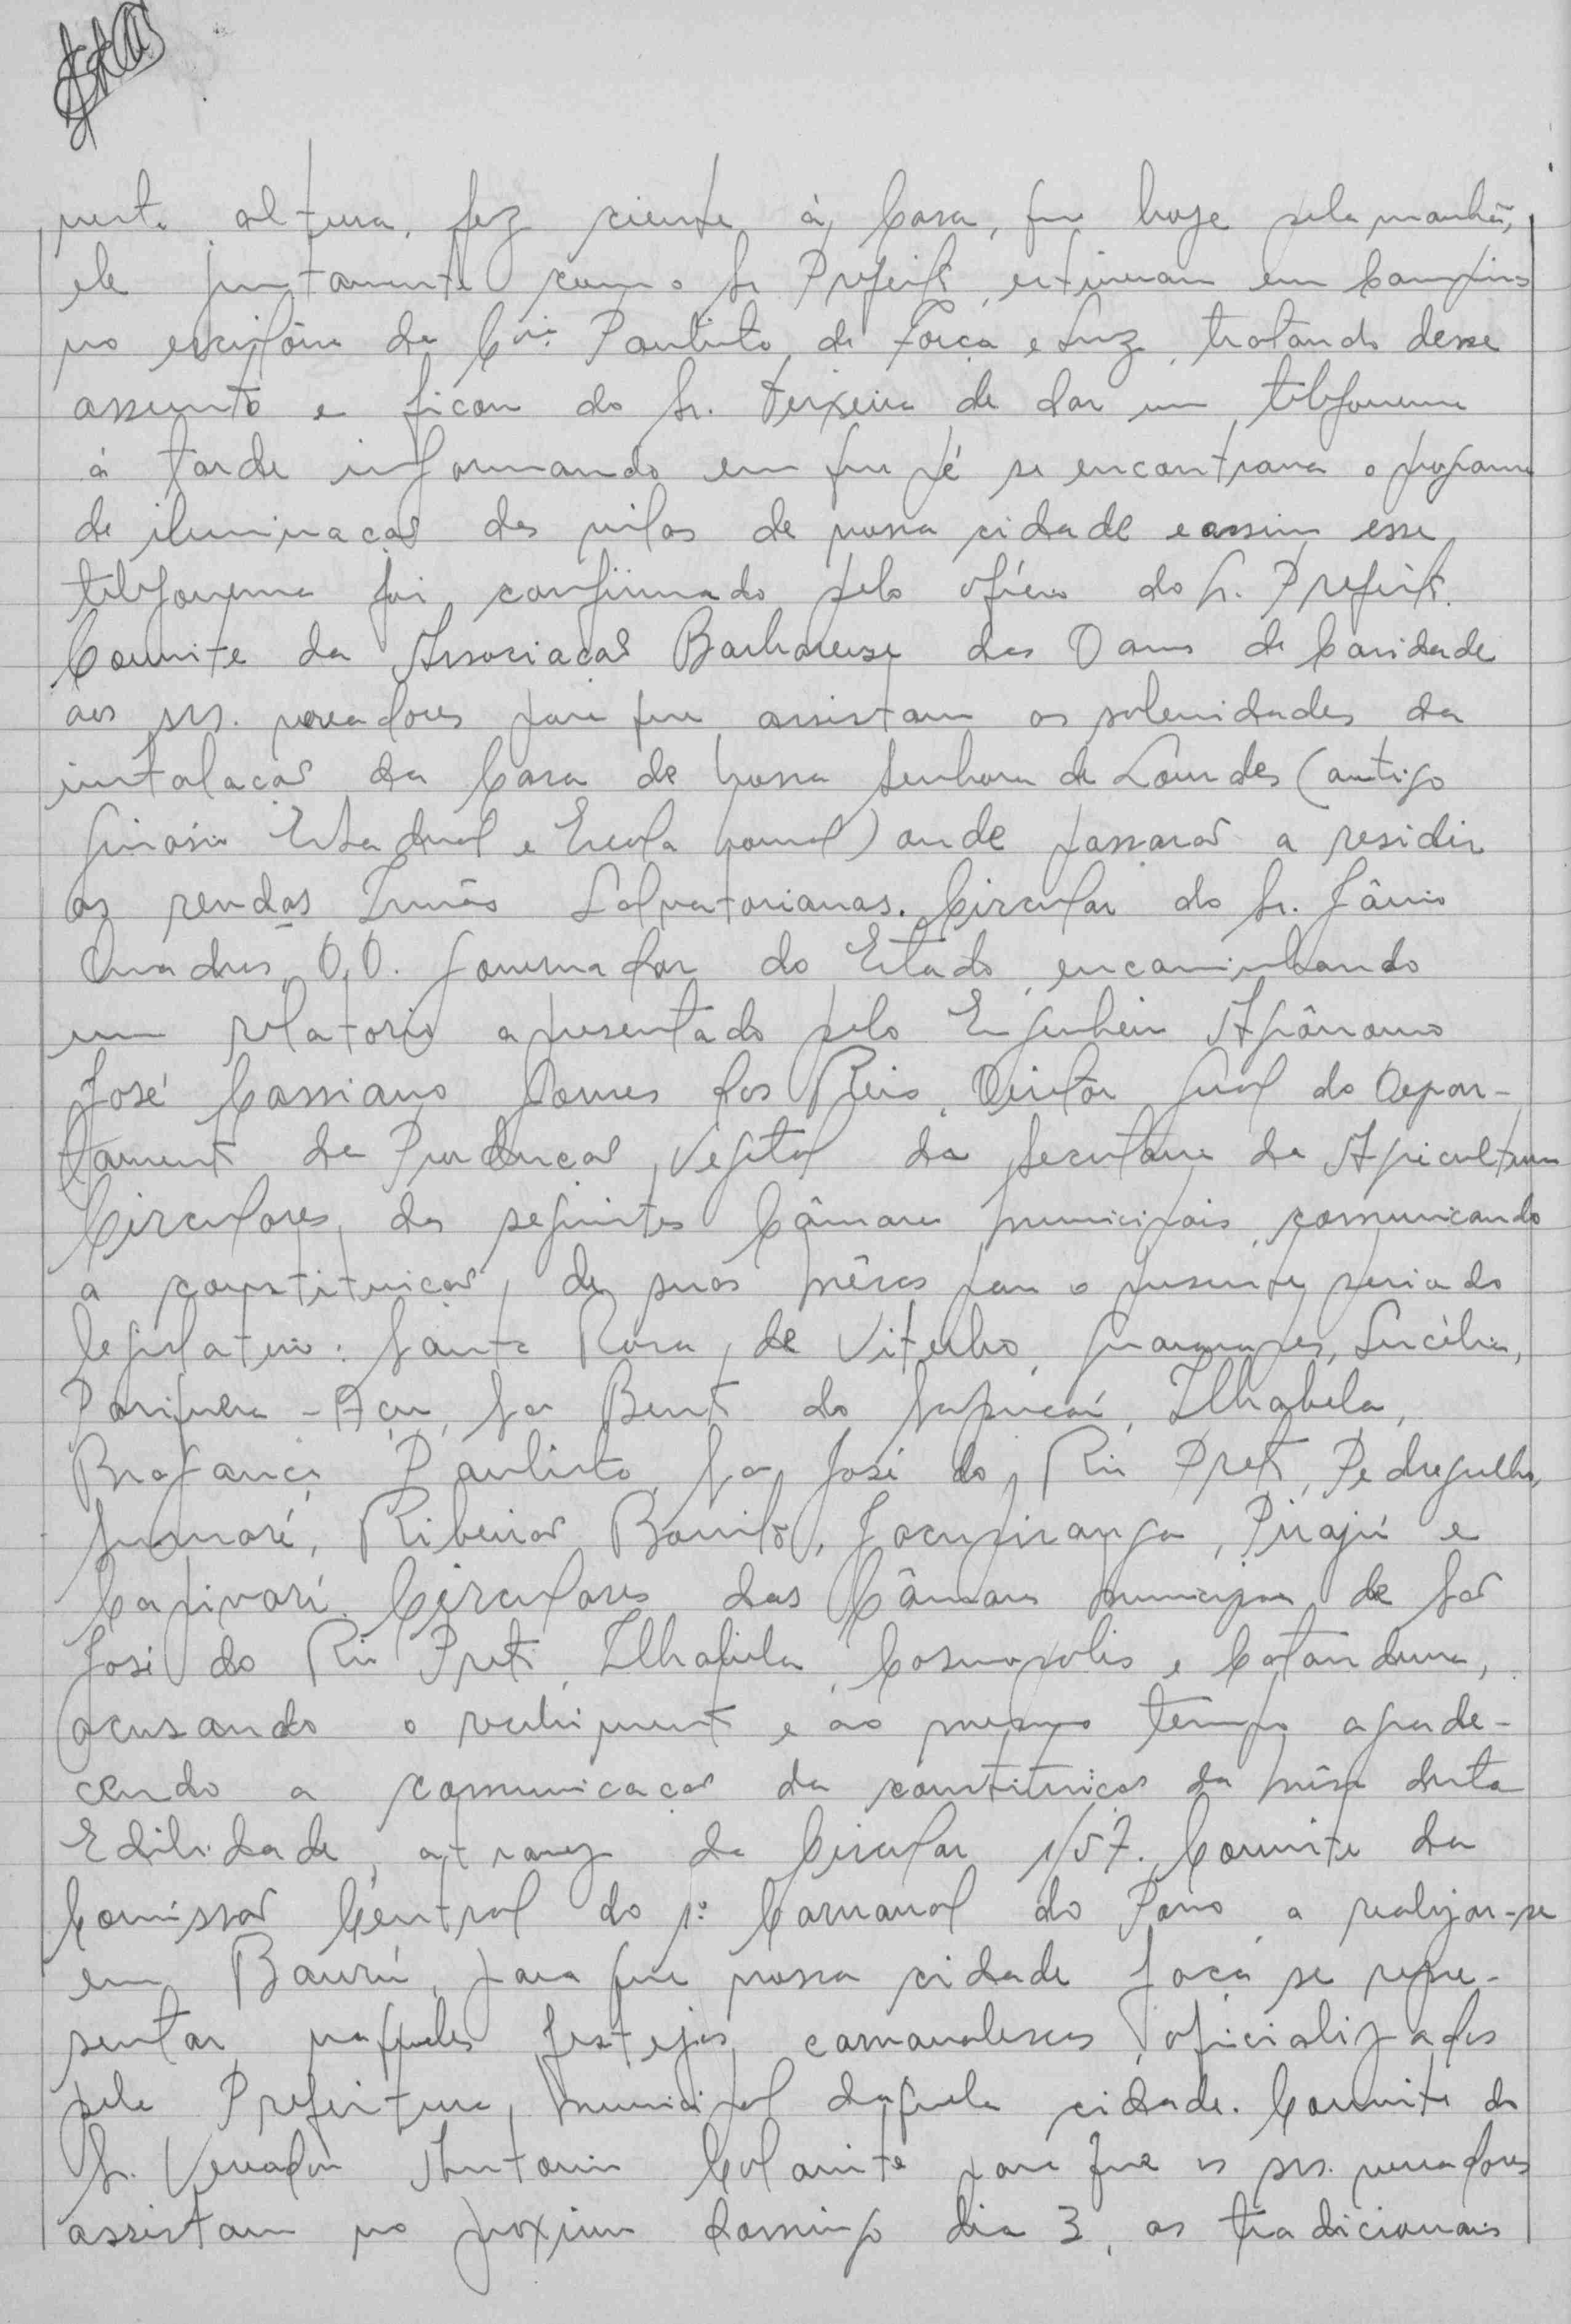 nesta altura, fez ciente à Casa, que hoje pela manhã,
ele juntamente com o Sr. Prefeito, estiveram em Campinas
no escritório da Cia. Paulista de Força e Luz, tratando desse
assunto e ficou do Sr. Teixeira de dar um telefonema
à tarde informando em que pé se encontrava o programa
de iluminação das vilas de nossa cidade e assim esse
telefonema foi confirmado pelo ofício do Sr. Prefeito.
Convite da Associação Barbarense das Damas de Caridade
aos srs. vereadores para que assistam as solenidades da
instalação da Casa de Nossa Senhora de Lourdes (antigo
Ginásio Estadual e Escola Normal) onde passarão a residir
as rendas Irmãs Salvatorianas. Circular do Sr. Jânio
Quadros, D.D. Governador do Estado, encaminhando
um relatorio apresentado pelo Engenheiro Agrônomo
José Cassiano Gomes dos Reis, Diretôr Geral do Depar-
tamento da Produção Vegetal da Secretaria da Agricultura
Circulares das seguintes Câmaras Municipais, comunicando
a constituição, de suas Mêsas para o presente periodo
legislativo: Santa Rosa de Viterbo, Guararapes, Lucélia,
Pariquera-Açu, São Bento do Sapucaí, Ilhabela,
Bragança Paulista, São José do Rio Preto, Pedregulho,
Sumaré, Ribeirão Bonito, Jacupiranga, Pirajú e
Capivarí. Circulares das Câmaras Municipais de São
José do Rio Preto, Ilhabela, Cosmopolis e Catanduva,
acusando o recebimento e ao mesmo tempo agrade-
cendo a comunicação da constituição da Mêsa desta
Edilidade, atravez da Circular 1/57. Convite da
Comissão Central do 1º Carnaval do Povo, a realizar-se
em Baurú, para que nossa cidade faça se repre-
sentar naqueles festejos carnavalescos, oficializados
pela Prefeitura Municipal daquela cidade. Convite do
Sr. Vereador Antonio Colanite para que os srs. vereadores
assistam no proximo domingo dia 3, as tradicionais